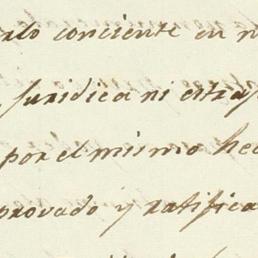 rlo conciente en n
juridica ni estra
por el mismo hec
provado y ratifica